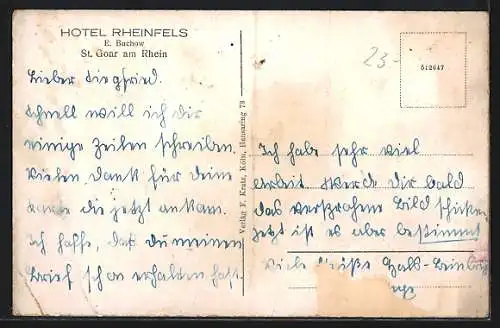 HOTEL RHEINFELS
E. Buchow
St. Goar am Rhein
Lieber Siegfried.
Schnell will ich dir
einige Zeilen schreiben.
Vielen Dank für deine
Karte die jetzt ankam.
Ich hoffe, das du meinen
Brief schon erhalten hast.
Verlag F. Kratz, Köln, Hansaring 73
23-
512647
Ich habe sehr viel
arbeit werde dir bald
das versprohene Bild schicken
jetzt ist es aber bestimmt
Viele Grüße